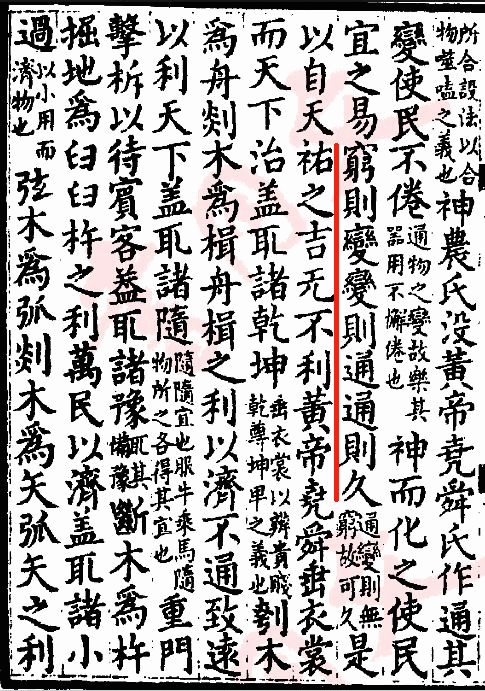 所合設法以合物噬嗑之義也神農氏没黃帝堯舜氏作通其
變使民不倦通物之變故樂其器用不懈倦也神而化之使民
宜之易窮則變變則通通則久通變則無窮故可久是
以自天祐之吉无不利黃帝堯舜垂衣裳
而天下治盖取諸乾坤垂衣裳以辨貴賤乾尊坤卑之義也刳木
爲舟剡木爲楫舟楫之利以濟不通致遠
以利天下盖取諸隨隨隨宜也服牛乘馬隨物所之各得其宜也重門
擊柝以待賓客葢取諸豫取其備豫斷木爲杵
掘地爲臼臼杵之利萬民以濟盖取諸小
過以小用而濟物也弦木爲弧剡木爲矢弧矢之利